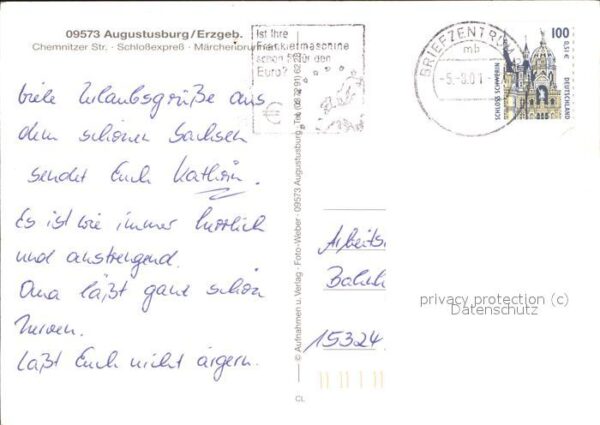 09573 Augustusburg/Erzgeb.
Chemnitzer Str. · Schloßexpreß · Märchenbrunnen
Ist Ihre
Frankiermaschine
schon fit für den
Euro?
BRIEFZENTRUM
mb
-5.-9.01
100
0,51 €
SCHLOSS SCHWERIN
DEUTSCHLAND
viele Urlaubsgrüße aus
dem schönen Sachsen
sendet Euch Kathrin.
Es ist wie immer herrlich
und anstrengend.
Oma läßt ganz schön
nerven.
Laßt Euch nicht ärgern.
© Aufnahmen u. Verlag · Foto-Weber · 09573 Augustusburg
CL
Arbeits
Bahnh
15324
privacy protection (c)
Datenschutz